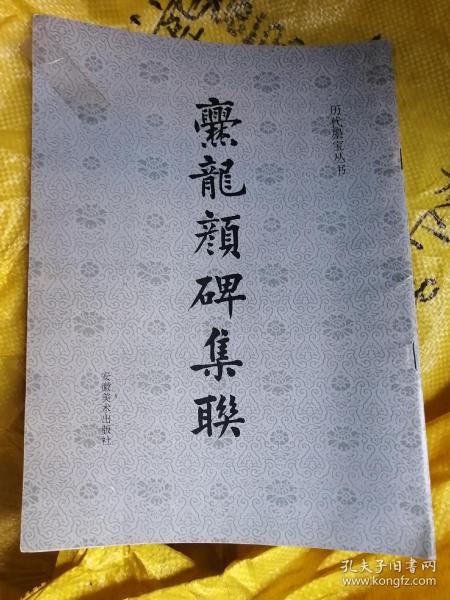 历代墨宝丛书
爨龍顔碑集聯
安徽美术出版社
孔夫子旧书网
www.kongfz.com